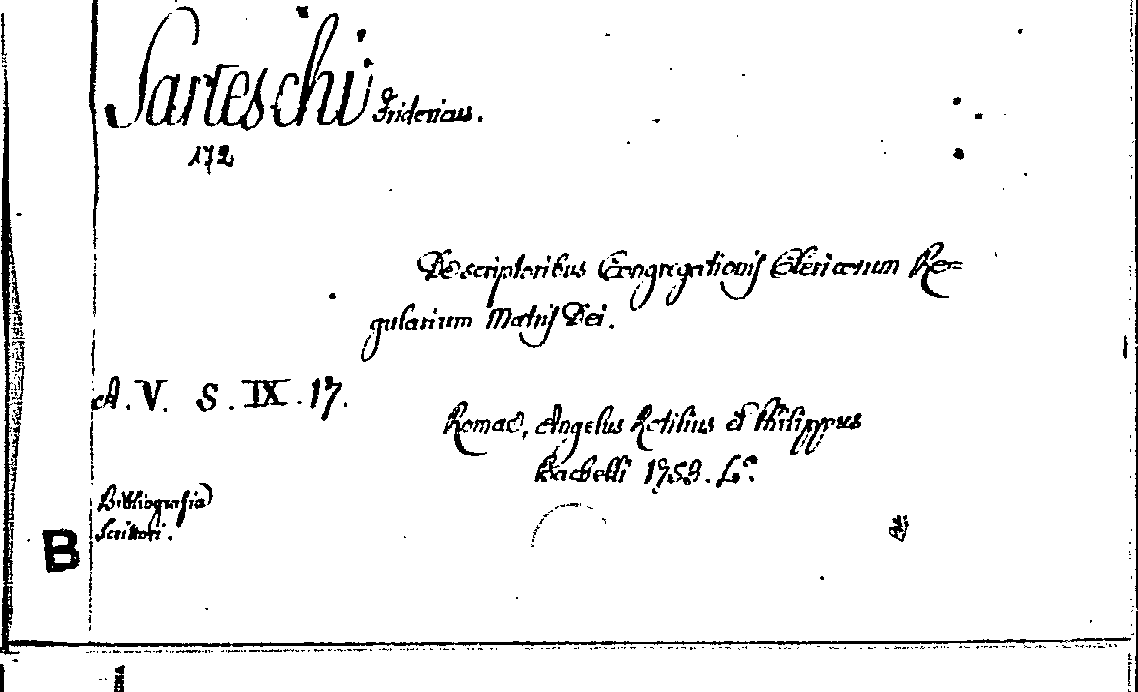 Sarteschi Fridericus.
172
De scriptoribus Congregationis Clericorum Re=
gularium Matris Dei.
A. V. S. IX. 17.
Romae, Angelus Rotilius et Philippus
Bacbelli 1753. 4°.
Bibliografia
Scrittori.
B